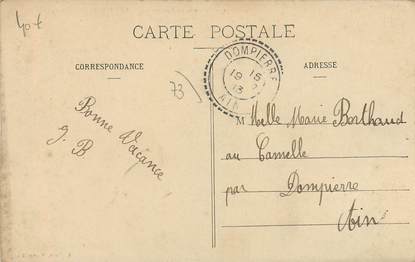 40 f
CARTE POSTALE
CORRESPONDANCE
ADRESSE
DOMPIERRE
AIN
73
Bonne Vacance
J. B
M Melle Marie Berthaud
au Camelle
par Dompierre
Ain